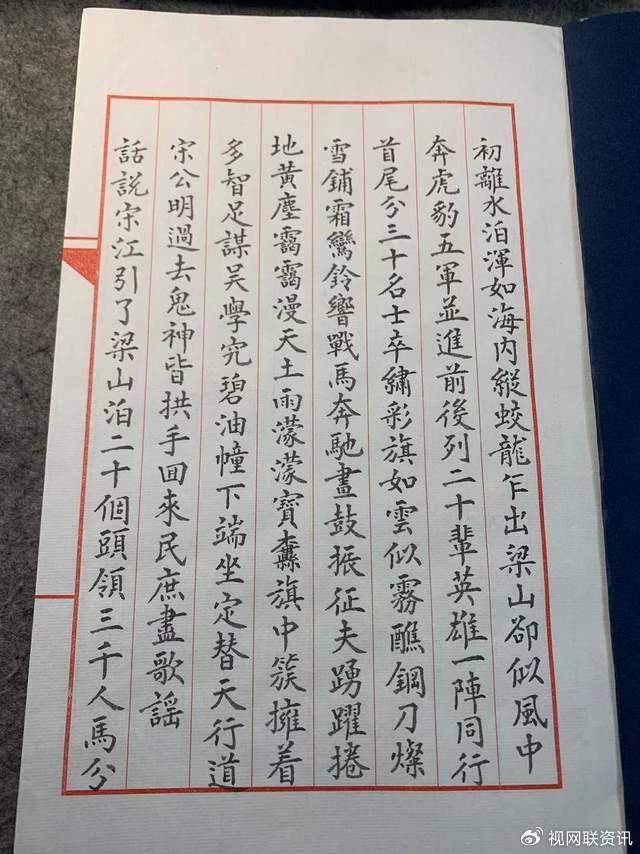 初離水泊渾如海內縱蛟龍乍出梁山卻似風中
奔虎豹五軍並進前後列二十輩英雄一陣同行
首尾分三十名士卒繡彩旗如雲似霧蘸鋼刀燦
雪鋪霜鸞鈴響戰馬奔馳畫鼓振征夫踴躍捲
地黃塵靄靄漫天土雨濛濛寶纛旗中簇擁着
多智足謀吴學究碧油幢下端坐定替天行道
宋公明過去鬼神皆拱手回來民庶盡歌謡
話説宋江引了梁山泊二十個頭領三千人馬分
@視网联资讯